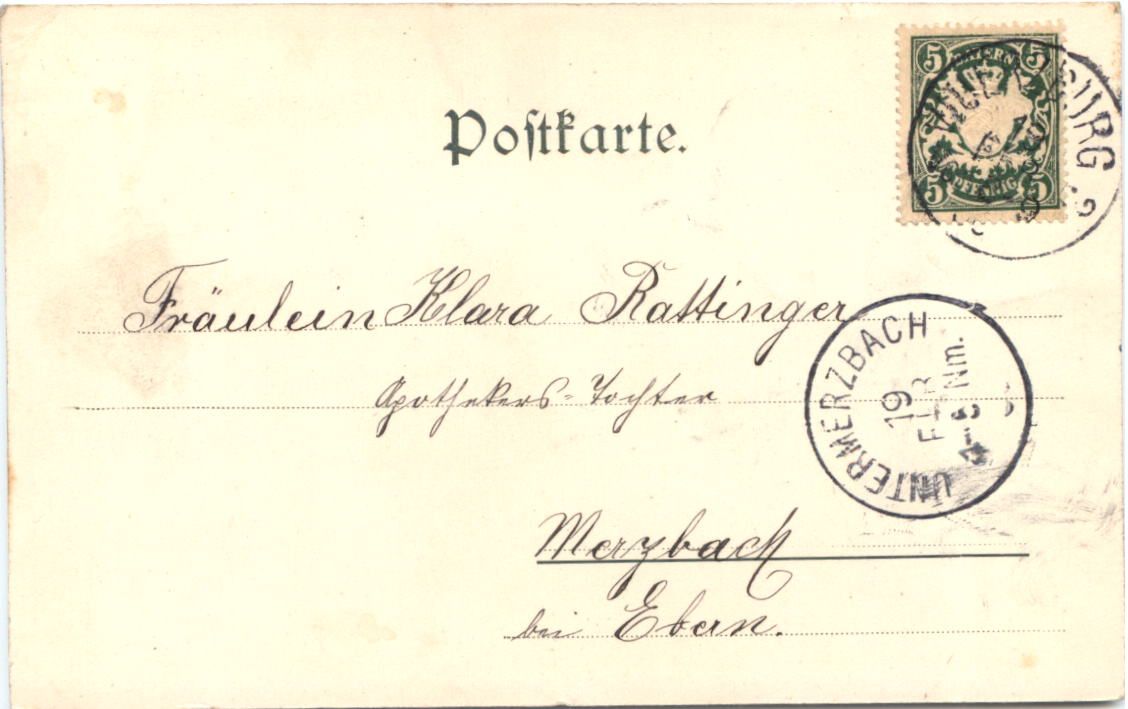 Postkarte.
5 BAYERN 5
5 PFENNIG 5
Fräulein Klara Rattinger
Apothekers-Tochter
UNTERMERZBACH
19
FEB
Nm.
Merzbach
bei Ebern.